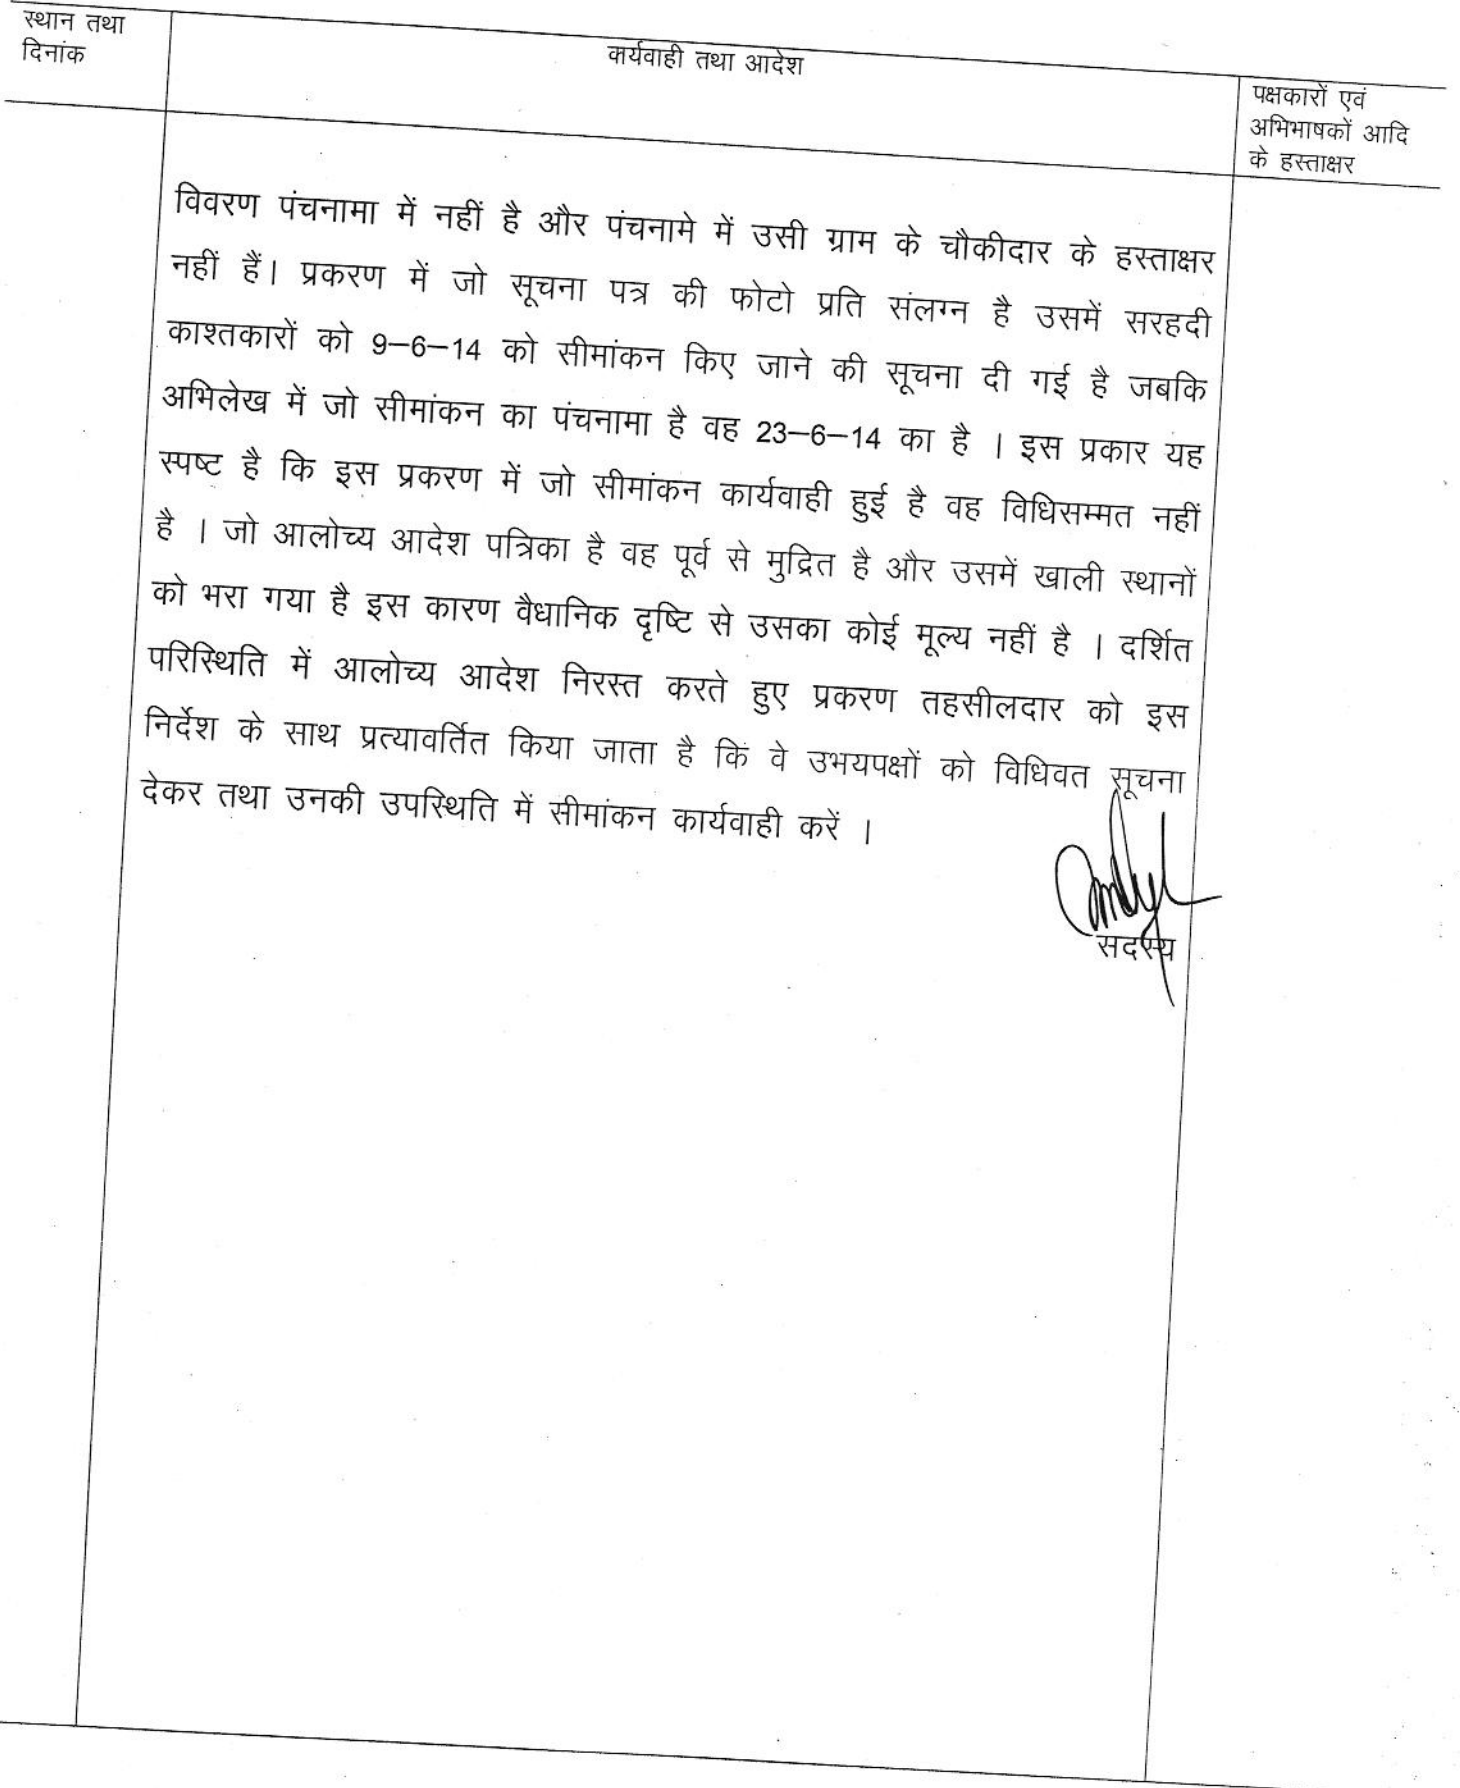 स्थान तथा
दिनांक
कार्यवाही तथा आदेश
पक्षकारों एवं
अभिभाषकों आदि
के हस्ताक्षर
विवरण पंचनामा में नहीं है और पंचनामे में उसी ग्राम के चौकीदार के हस्ताक्षर
नहीं हैं। प्रकरण में जो सूचना पत्र की फोटो प्रति संलग्न है उसमें सरहदी
काश्तकारों को 9–6–14 को सीमांकन किए जाने की सूचना दी गई है जबकि
अभिलेख में जो सीमांकन का पंचनामा है वह 23–6–14 का है । इस प्रकार यह
स्पष्ट है कि इस प्रकरण में जो सीमांकन कार्यवाही हुई है वह विधिसम्मत नहीं
है । जो आलोच्य आदेश पत्रिका है वह पूर्व से मुद्रित है और उसमें खाली स्थानों
को भरा गया है इस कारण वैधानिक दृष्टि से उसका कोई मूल्य नहीं है । दर्शित
परिस्थिति में आलोच्य आदेश निरस्त करते हुए प्रकरण तहसीलदार को इस
निर्देश के साथ प्रत्यावर्तित किया जाता है कि वे उभयपक्षों को विधिवत सूचना
देकर तथा उनकी उपस्थिति में सीमांकन कार्यवाही करें ।
सदस्य